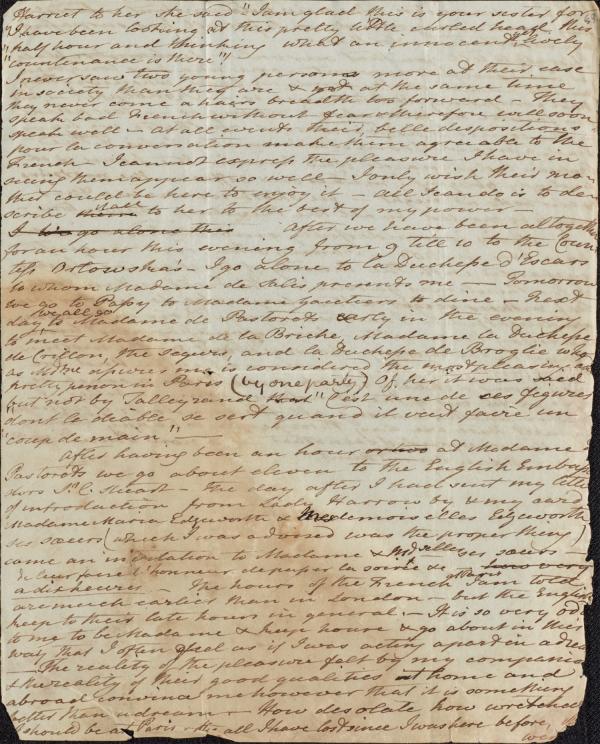 Harriet to her she said "I am glad this is your sister for
"I have been looking at this pretty little curled head this
"half hour and thinking what an innocent lively
"countenance is there"
I never saw two young persons more at their ease
in society than they are & yet at the same time
they never come a hairs breadth too forward – They
speak bad French without fear & therefore will soon
speak well – at all events their belle dispositions
pour la conversation make them agreable to the
French – I cannot express the pleasure I have in
seeing them appear so well – I only wish their mo
ther could be here to enjoy it – all I can do is to de
scribe all to her to the best of my power –
I go alone this After we have been altogether
for an hour this evening from 9 till 10 to the Coun
tess Orlowska's – I go alone to la Duchesse d'Escars
to whom Madame de Salis presents me – Tomorrow
we go to Passy to Madame Gautiers to dine – Next
day we all go to Madame de Pastorets early in the evening
to meet Madame de la Briche, Madame la Duchesse
de Crillon, the Segurs, and la Duchesse de Broglie who
as assure me is considered the most pleasing and
pretty person in Paris (by one party) Of her it was said
but not by Talleyrand "C'est une de ces figures
"dont le diable se sert quand il veut faire un
"coup de main" –
After having been an hour or two at Madame
Pastorets we go about eleven to the English Embass
adors Sr. C. Stuart – The day after I had sent my letter
of introduction from Lady Harrowby & my card
Madame Maria Edgeworth & Mesdemoiselles Edgeworth
ses soeurs (which I was advised was the proper thing)
came an invitation to Madame & Mdselles ses soeurs –
de leur faire l'honneur de passer la soirée de
a dix heures – The hours of the French at Paris I am told
are much earlier than in London – but the English
keep to their late hours in general. – It is so very odd
to me to be Madame & keep house & go about in this
way that I often feel as if I was acting a part in a dream
– The reality of the pleasure felt by my companions
& the reality of their good qualities at home and
abroad convince me however that it is something
better than a dream – How desolate how wretched
I should be at Paris after all I have lost since I was here before,